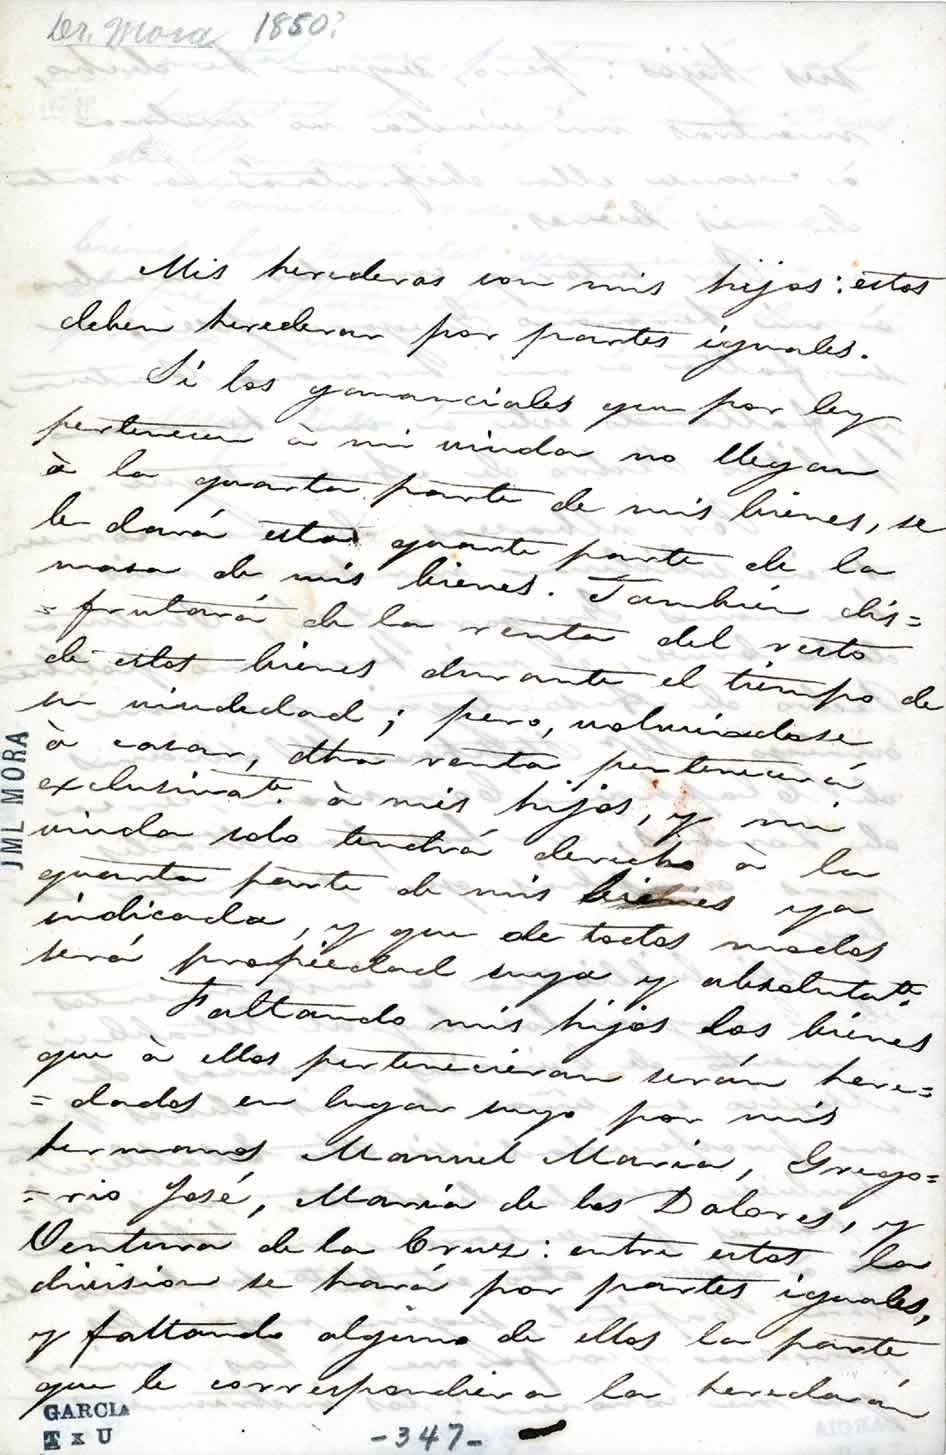 Dr. Mora 1850?
Mis herederos son mis hijos: estos
deben herederar por partes iguales.
Si los gananciales que por ley
pertenecen à mi viuda no llegan
à la quarta parte de mis bienes, se
le dará esta quarta parte de la
masa de mis bienes. Tambien dis=
=frutará de la renta del resto
de estos bienes durante el tiempo de
su viudedad; pero, volviendose
à casar, dha renta pertenecerá
exclusivate. à mis hijos, y mi
viuda solo tendrá derecho à la
quarta parte de mis bienes ya
indicada, y que de todos modos
será propiedad suya y absolutate.
Faltando mis hijos los bienes
que à ellos pertenecieran serán here=
=dados en lugar suyo por mis
hermanos Manuel María, Grego=
=rio José, María de los Dolores, y
Ventura de la Cruz: entre estos la
division se hará por partes iguales,
y faltando alguno de ellos la parte
que le correspondiera la heredarán
JML MORA
GARCIA
TxU
-347-